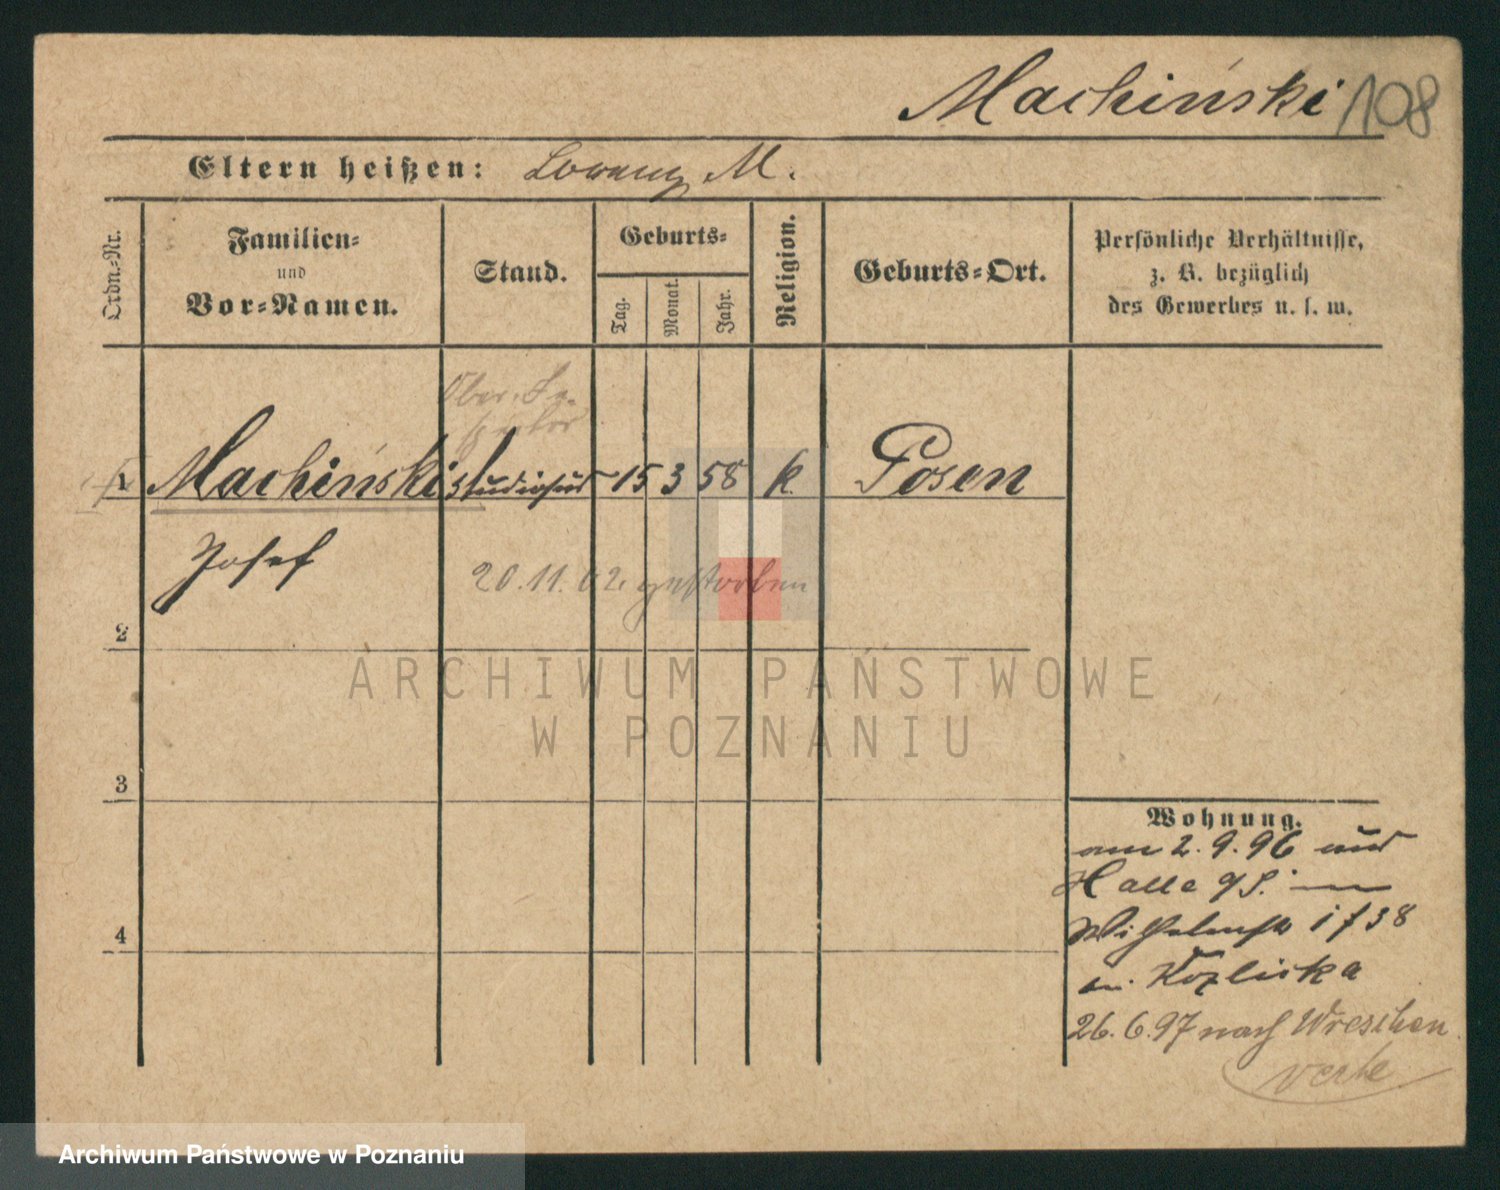 Machiński 108
Eltern heißen: Lorenz M.
Ordn.-Nr.
Familien-
und
Vor-Namen.
Stand.
Geburts-
Tag.
Monat.
Jahr.
Religion.
Geburts-Ort.
Persönliche Verhältnisse,
z. B. bezüglich
des Gewerbes u. s. w.
1 Machiński 15 3 58 k. Posen
Josef
20.11.02. gestorben
2
3
4
Wohnung.
am 2.9.96 aus
Halle a/S.
Wilhelmstr 38
Kozlicka
26.6.97 nach Wreschen
ARCHIWUM PAŃSTWOWE
W POZNANIU
Archiwum Państwowe w Poznaniu